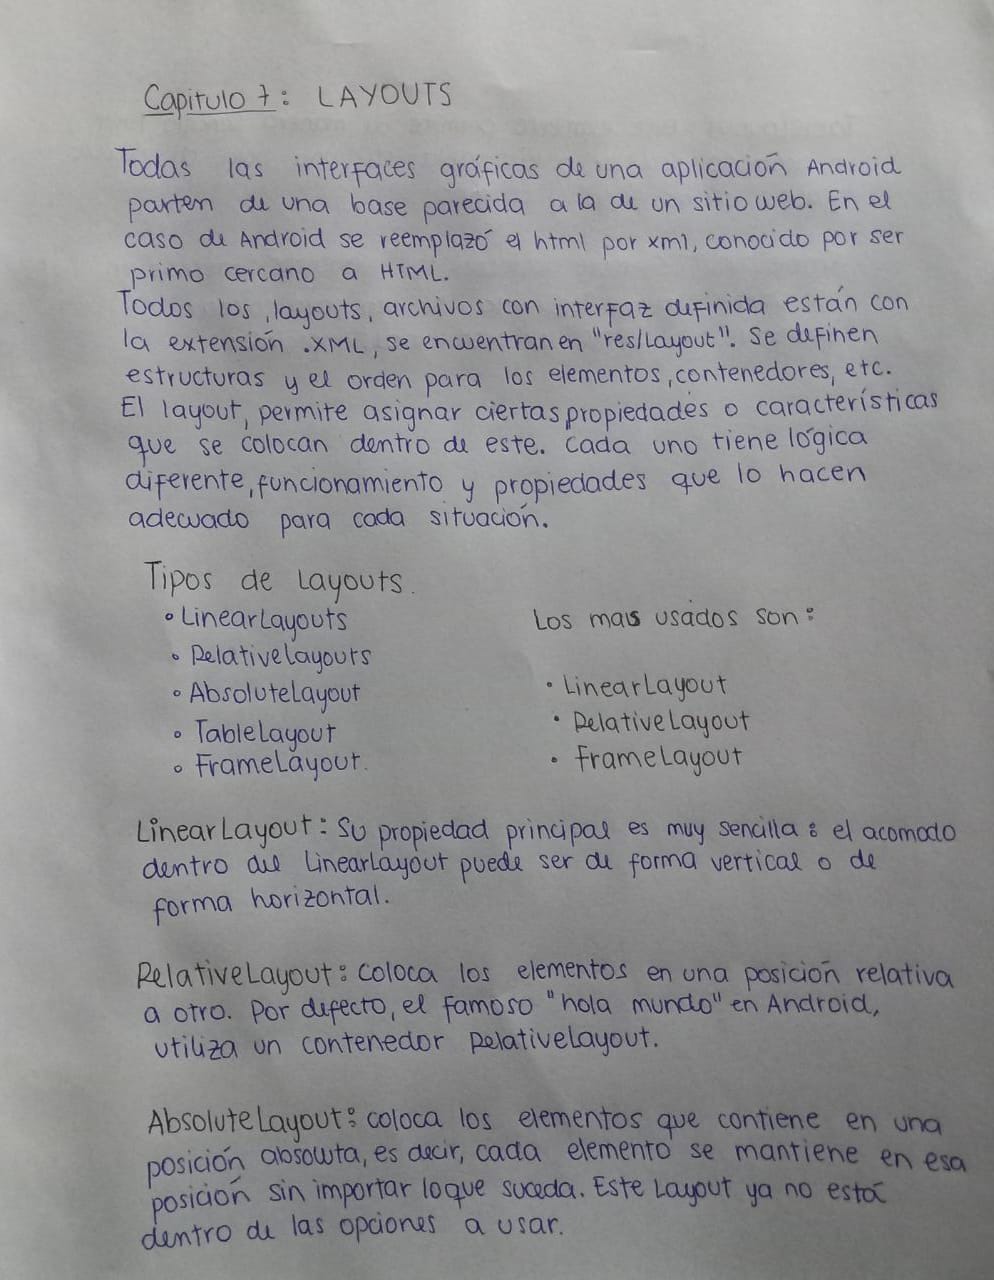 Capitulo 7: LAYOUTS
Todas las interfaces gráficas de una aplicación Android
parten de una base parecida a la de un sitio web. En el
caso de Android se reemplazó el html por xml, conocido por ser
primo cercano a HTML.
Todos los layouts, archivos con interfaz definida están con
la extensión .XML, se encuentran en "res/Layout". Se definen
estructuras y el orden para los elementos, contenedores, etc.
El layout, permite asignar ciertas propiedades o características
que se colocan dentro de este. Cada uno tiene lógica
diferente, funcionamiento y propiedades que lo hacen
adecuado para cada situación.
Tipos de Layouts.
• LinearLayouts
• RelativeLayouts
• AbsoluteLayout
• TableLayout
• FrameLayout.
Los mas usados son:
• LinearLayout
• RelativeLayout
• FrameLayout
LinearLayout: Su propiedad principal es muy sencilla: el acomodo
dentro del LinearLayout puede ser de forma vertical o de
forma horizontal.
RelativeLayout: Coloca los elementos en una posición relativa
a otro. Por defecto, el famoso "hola mundo" en Android,
utiliza un contenedor RelativeLayout.
AbsoluteLayout: coloca los elementos que contiene en una
posición absoluta, es decir, cada elemento se mantiene en esa
posición sin importar lo que suceda. Este Layout ya no está
dentro de las opciones a usar.